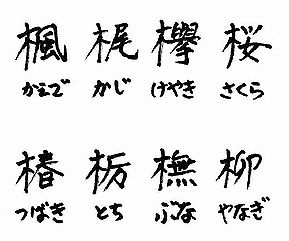 楓 梶 欅 桜
かえで かじ けやき さくら
椿 栃 橅 柳
つばき とち ぶな やなぎ